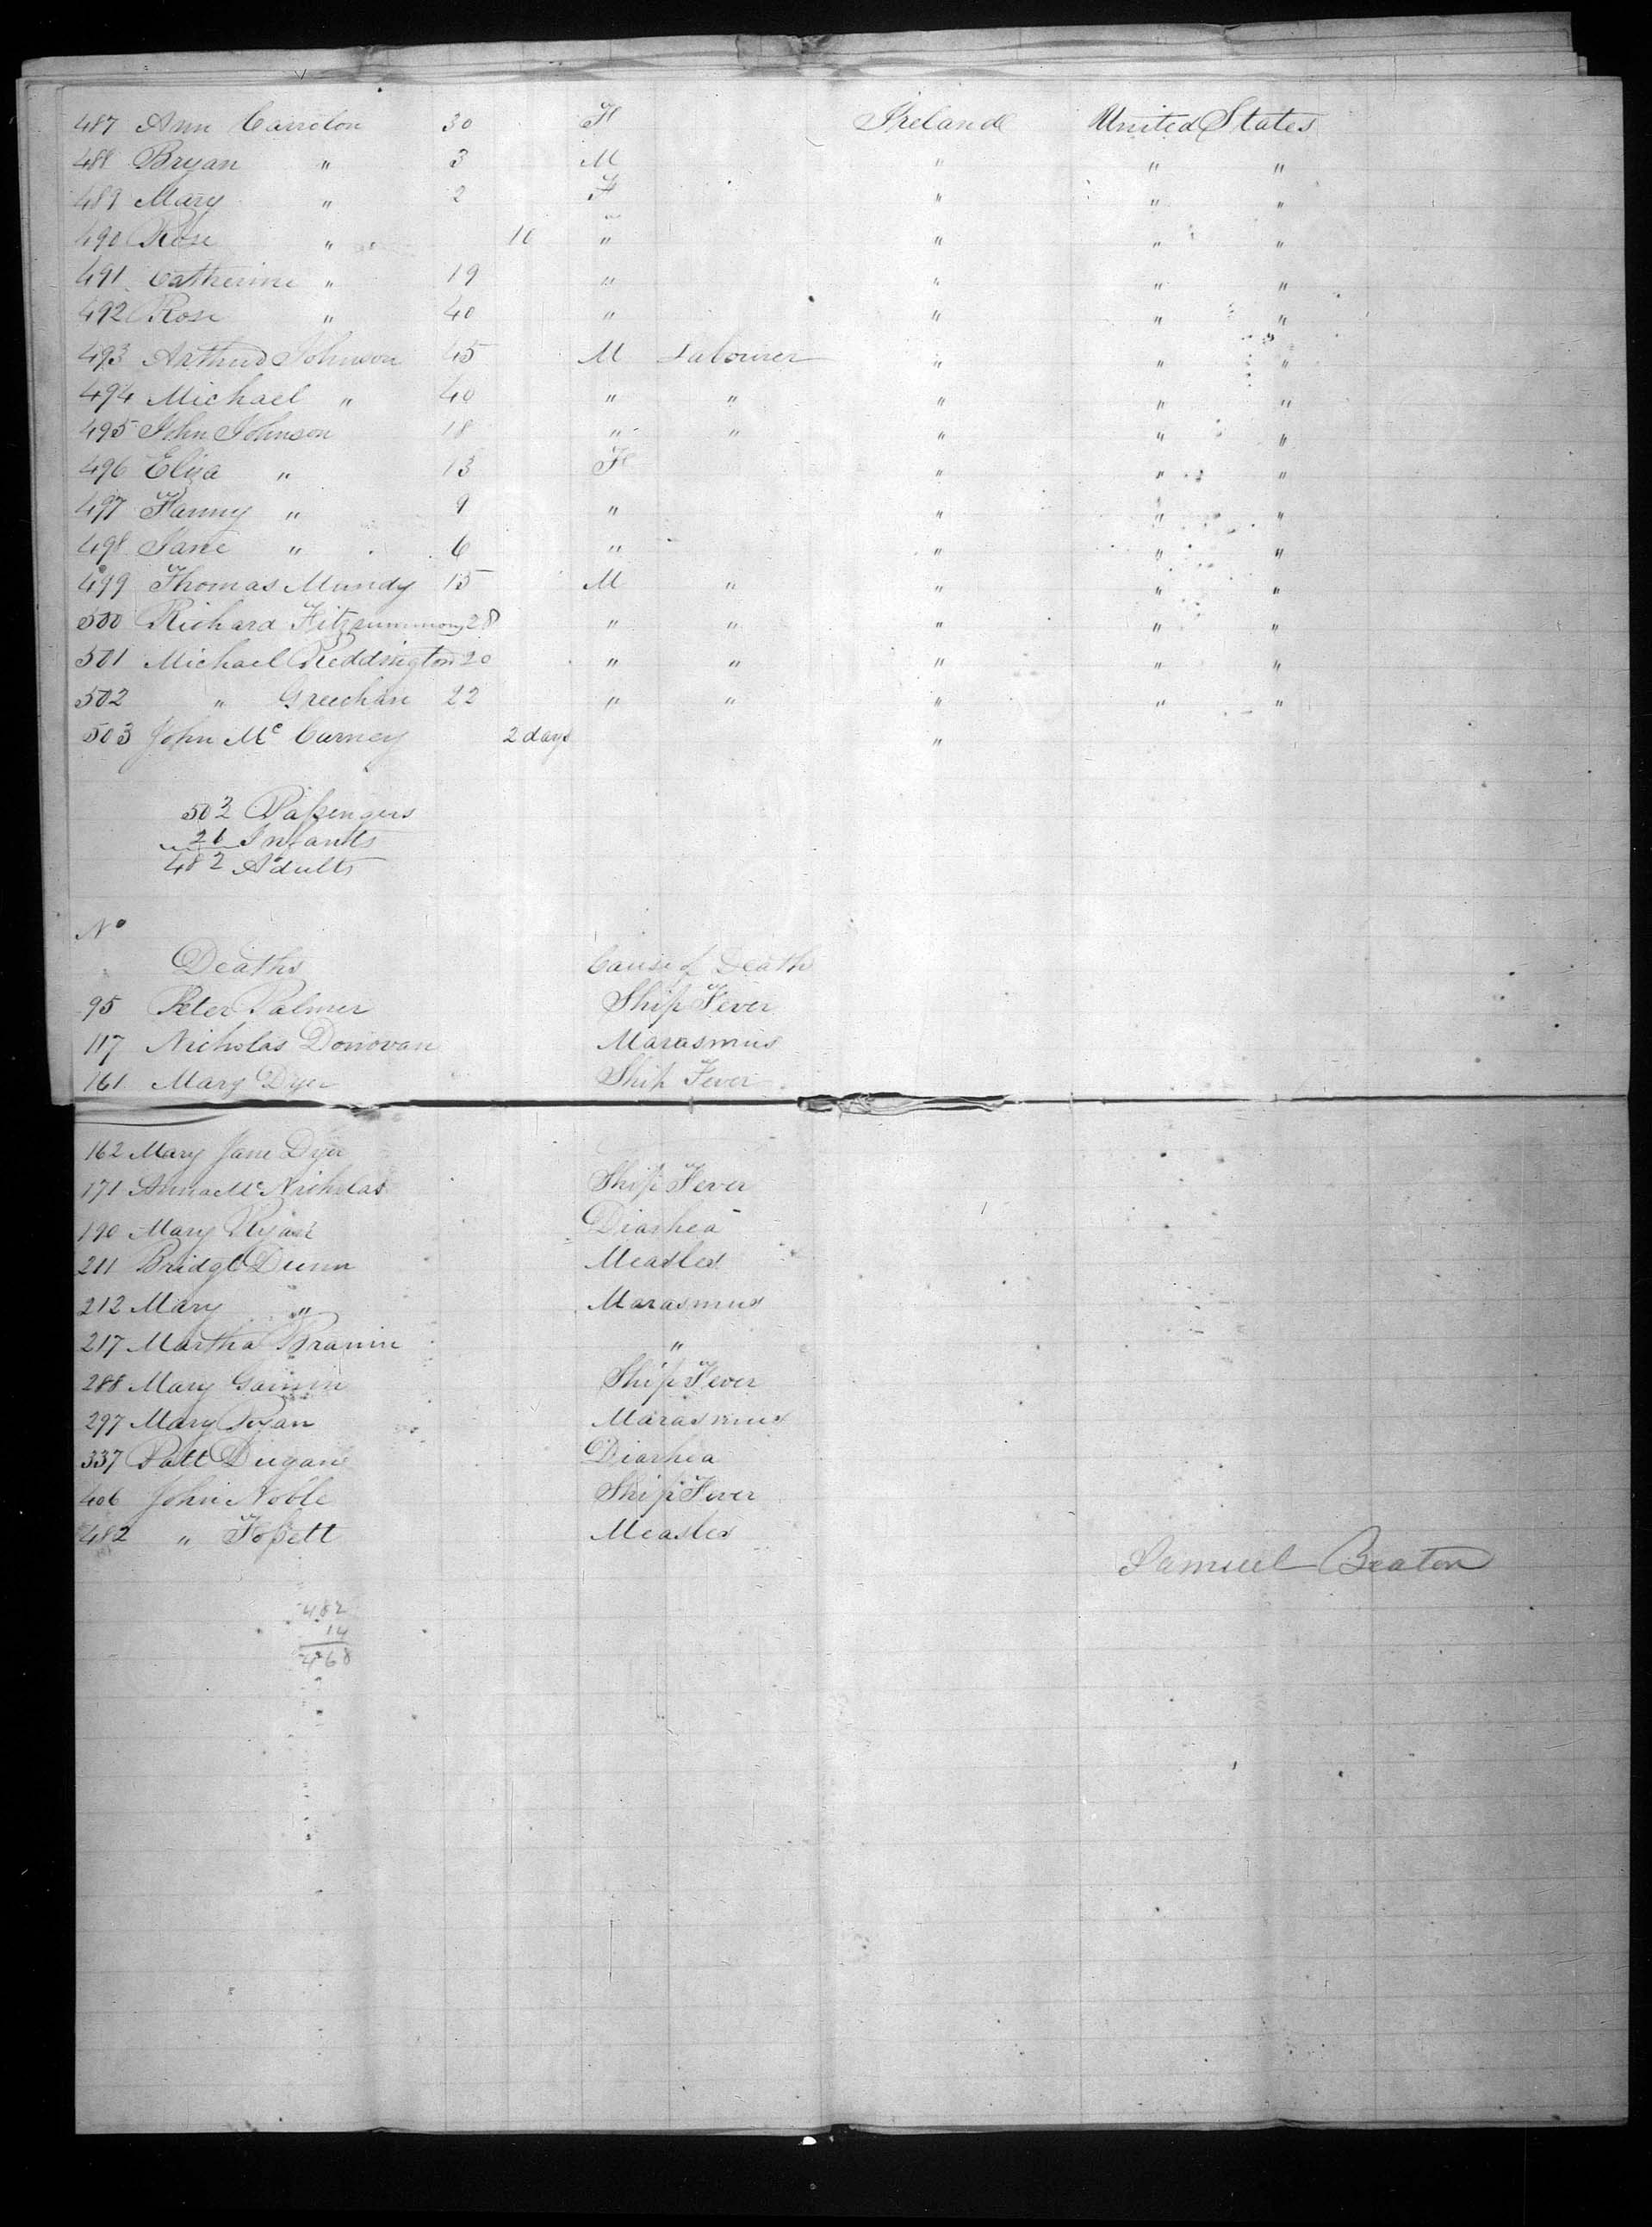 487 Ann Carrolon 30 F Ireland United States
488 Bryan " 3 M " " "
489 Mary " 2 F " " "
490 Rose " 10 " " " "
491 Catherine " 19 " " " "
492 Rose " 40 " " " "
493 Arthur Johnson 45 M Labourer " " "
494 Michael " 40 " " " " "
495 John Johnson 18 " " " " "
496 Eliza " 13 F " " "
497 Fanny " 9 " " " "
498 Jane " 6 " " " "
499 Thomas Mundy 15 M " " " "
500 Richard Fitzsummons 28 " " " " "
501 Michael Reddington 20 " " " " "
502 " Greechan 22 " " " " "
503 John Mc Carney 2 days "
502 Passengers
21 Infants
482 Adults
No
Deaths Cause of Death
95 Peter Palmer Ship Fever
117 Nicholas Donovan Marasmus
161 Mary Dyer Ship Fever
162 Mary Jane Dyer
171 Anna Mc Nicholas Ship Fever
190 Mary Ryan Diarhea
211 Bridgt Dunn Measles
212 Mary " Marasmus
217 Martha Brannin "
288 Mary Gainin Ship Fever
297 Mary Ryan Marasmus
337 Patt Dugan Diarhea
406 John Noble Ship Fever
482 " Fossett Measles
Samuel Beaton
482
14
468